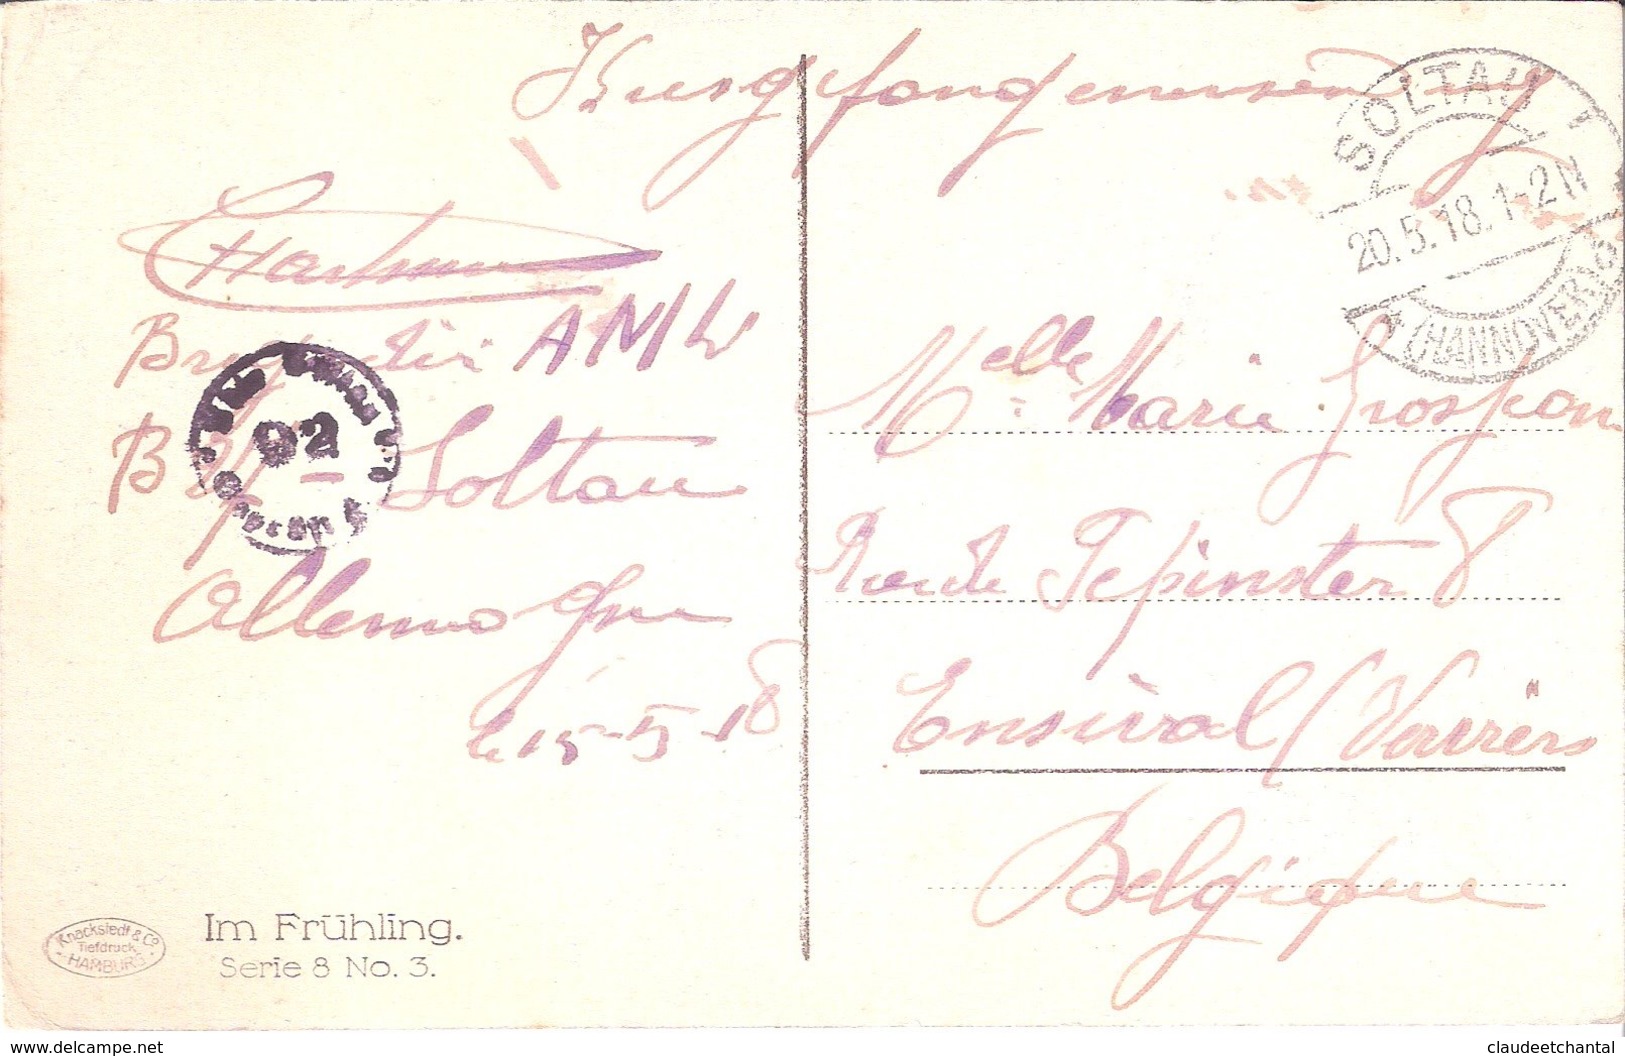 Kriegsgefangenensendung
SOLTAU
20.5.18.1-2N
(HANNOVER)
Brigadier
92
B Soltau
Allemagne
le 15-5-18
Melle Marie Grosjean
Rue de Pepinster 8
Ensival (Verviers
Belgique
Knackstedt & Co
Tiefdruck
HAMBURG
Im Frühling.
Serie 8 No. 3.
www.delcampe.net
claudeetchantal